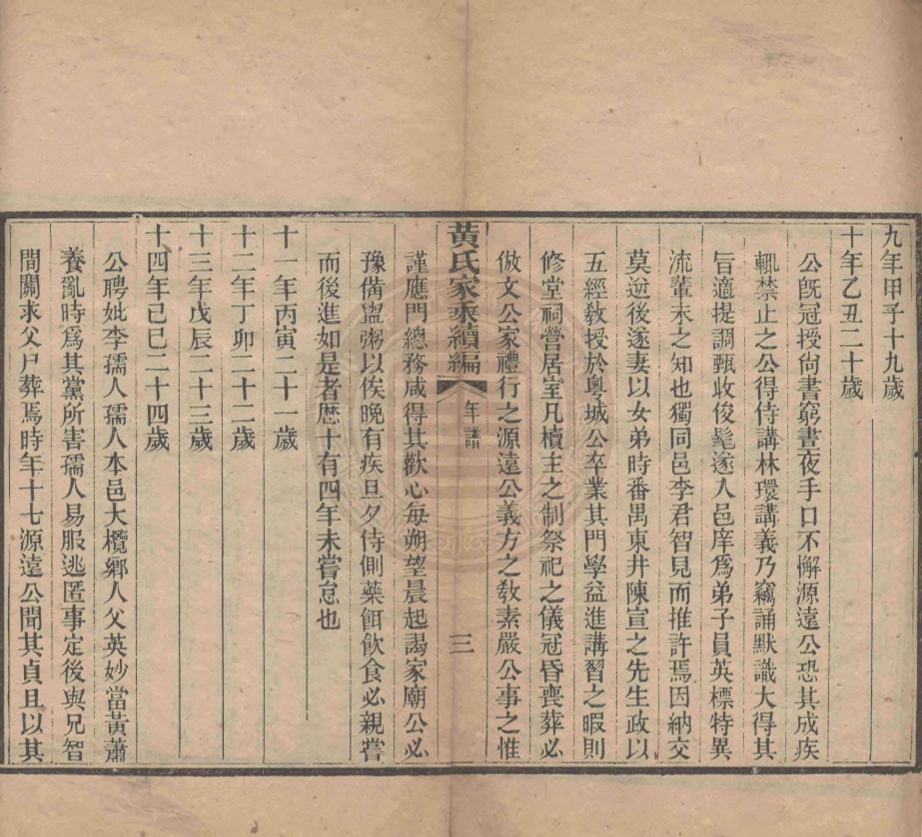 九年甲子十九歲
十年乙丑二十歲
公旣冠授尙書窮晝夜手口不懈源遠公恐其成疾
輒禁止之公得侍講林環講義乃竊誦默識大得其
旨適提調甄收俊髦遂入邑庠爲弟子員英標特異
流輩未之知也獨同邑李君智見而推許焉因納交
莫逆後遂妻以女弟時番禺東井陳宣之先生政以
五經敎授於粵城公卒業其門學益進講習之暇則
修堂祠營居室凡櫝主之制祭祀之儀冠昏喪葬必
倣文公家禮行之源遠公義方之敎素嚴公事之惟
黃氏家乘續編 年譜 三
謹應門總務咸得其歡心每朔望晨起謁家廟公必
豫備盥粥以俟晚有疾旦夕侍側藥餌飮食必親嘗
而後進如是者歷十有四年未嘗怠也
十一年丙寅二十一歲
十二年丁卯二十二歲
十三年戊辰二十三歲
十四年己巳二十四歲
公聘妣李孺人孺人本邑大欖鄉人父英妙當黃蕭
養亂時爲其黨所害孺人易服逃匿事定後與兄智
間關求父尸葬焉時年十七源遠公聞其貞且以其